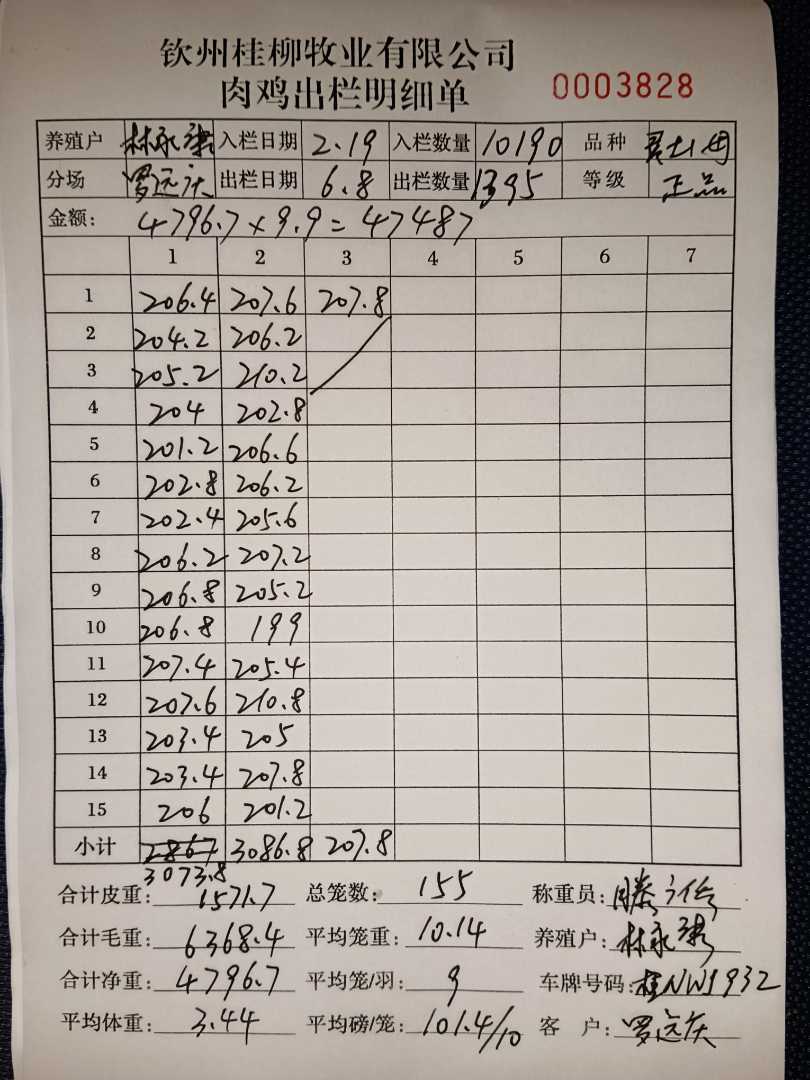 钦州桂柳牧业有限公司
肉鸡出栏明细单 0003828
养殖户 林永 入栏日期 2.19 入栏数量 10190 品种
分场 罗远庆 出栏日期 6.8 出栏数量 1395 等级 正品
金额: 4796.7×9.9=47487
1 2 3 4 5 6 7
1 206.4 207.6 207.8
2 204.2 206.2
3 205.2 210.2
4 204 202.8
5 201.2 206.6
6 202.8 206.2
7 202.4 205.6
8 206.2 207.2
9 206.8 205.2
10 206.8 199
11 207.4 205.4
12 207.6 210.8
13 203.4 205
14 203.4 207.8
15 206 201.2
小计 2867 3086.8 207.8
3073.8
合计皮重: 1571.7 总笼数: 155 称重员:
合计毛重: 6368.4 平均笼重: 10.14 养殖户: 林永
合计净重: 4796.7 平均笼/羽: 9 车牌号码: 桂NW5932
平均体重: 3.44 平均磅/笼: 101.4/10 客户: 罗远庆